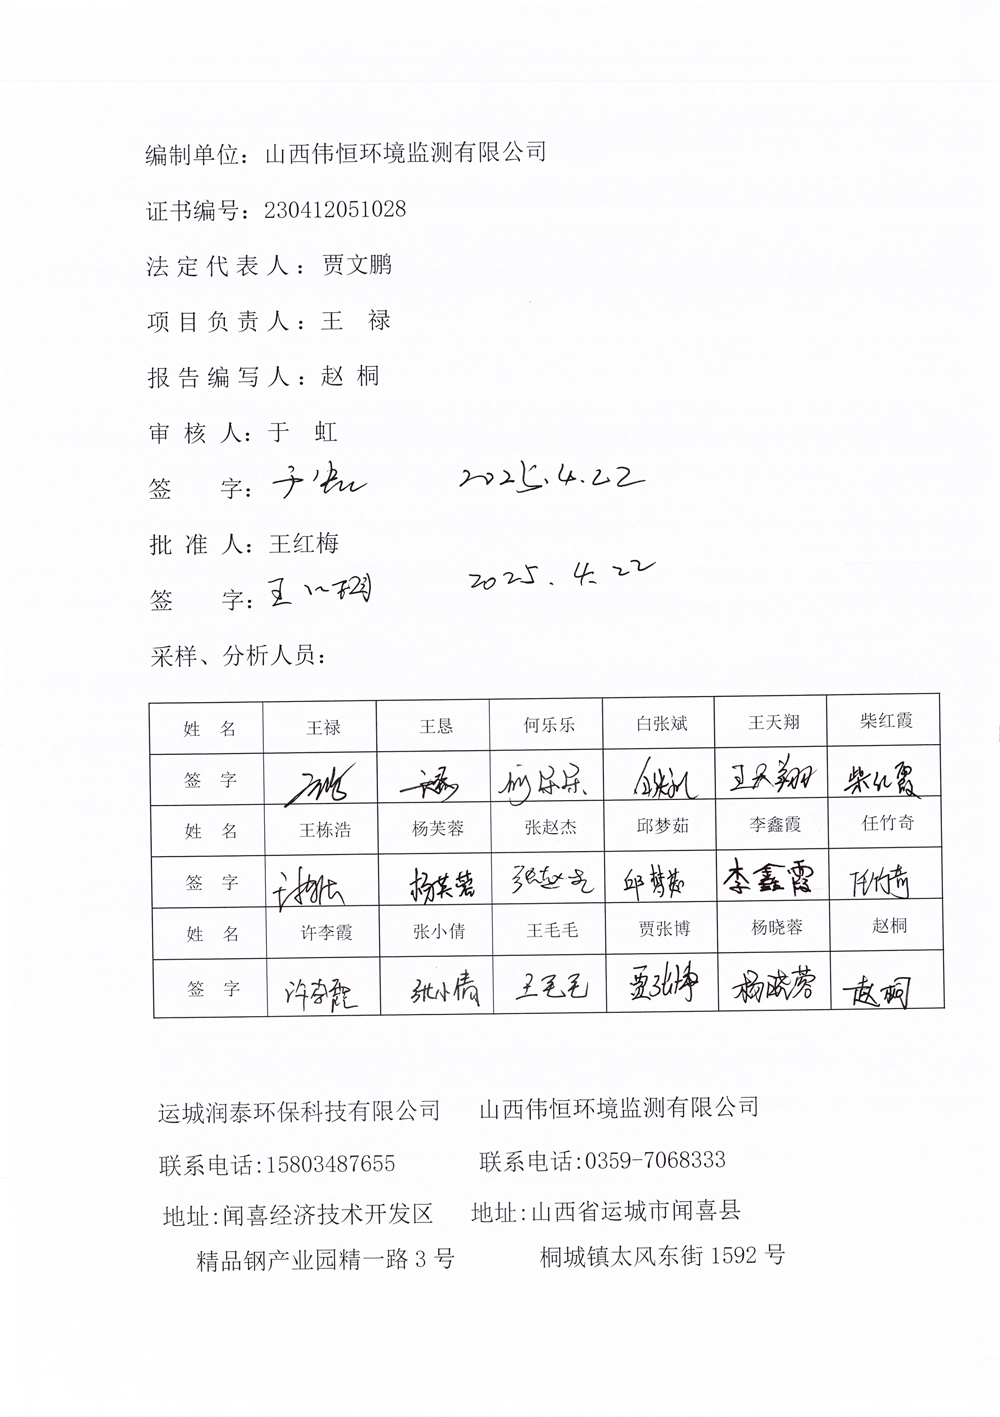 编制单位：山西伟恒环境监测有限公司
证书编号：230412051028
法定代表人：贾文鹏
项目负责人：王 禄
报告编写人：赵 桐
审 核 人：于 虹
签 字：于虹 2025.4.22
批 准 人：王红梅
签 字：王 2025.4.22
采样、分析人员：
姓 名 王禄 王恳 何乐乐 白张斌 王天翔 柴红霞
签 字 王禄 王恳 何乐乐 白张斌 王天翔 柴红霞
姓 名 王栋浩 杨芙蓉 张赵杰 邱梦茹 李鑫霞 任竹奇
签 字 杨芙蓉 张赵杰 邱梦茹 李鑫霞 任竹奇
姓 名 许李霞 张小倩 王毛毛 贾张博 杨晓蓉 赵桐
签 字 许李霞 张小倩 王毛毛 贾张博 杨晓蓉 赵桐
运城润泰环保科技有限公司 山西伟恒环境监测有限公司
联系电话:15803487655 联系电话:0359-7068333
地址:闻喜经济技术开发区 地址:山西省运城市闻喜县
精品钢产业园精一路 3 号 桐城镇太风东街 1592 号